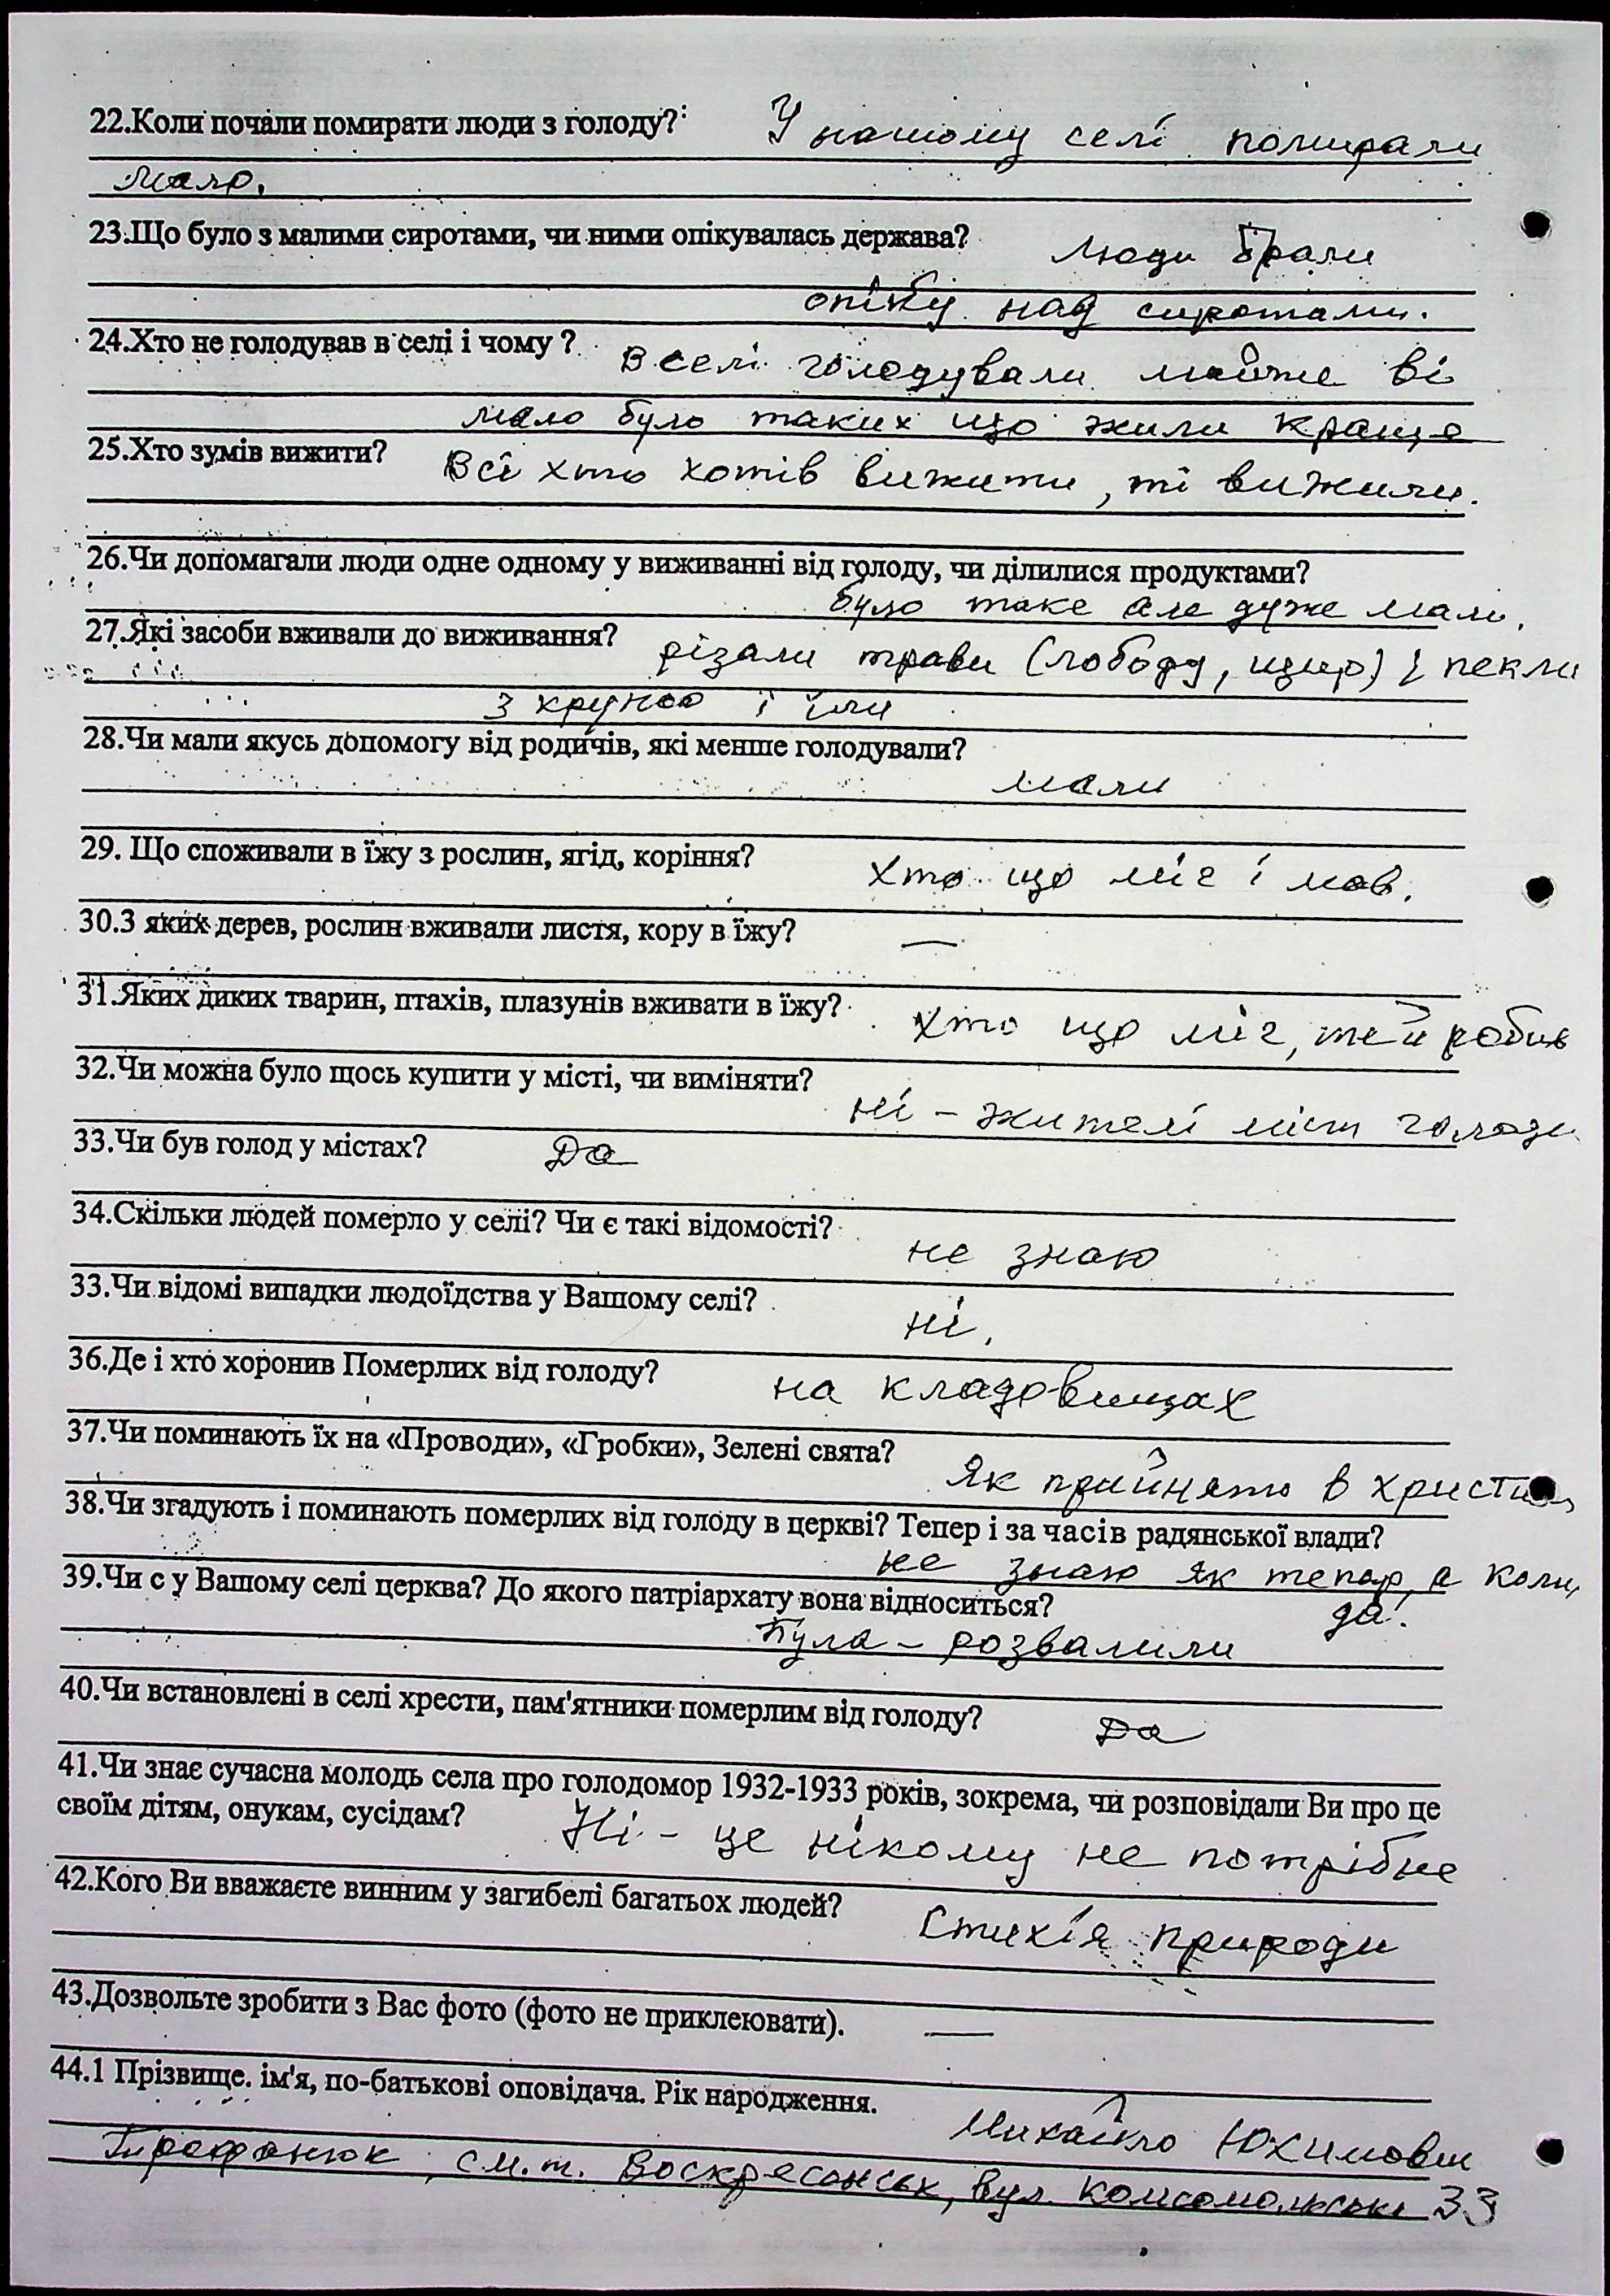 22.Коли почали помирати люди з голоду? У нашому селі помирали
мало.
23.Що було з малими сиротами, чи ними опікувалась держава? люди брали
опіку над сиротами.
24.Хто не голодував в селі і чому ? В селі голодували майже всі
мало було таких що жили краще
25.Хто зумів вижити? Всі хто хотів вижити, ті вижили.
26.Чи допомагали люди одне одному у виживанні від голоду, чи ділилися продуктами?
було таке але дуже мало.
27.Які засоби вживали до виживання? різали трави (лободу, щир) і пекли
з крупою і їли
28.Чи мали якусь допомогу від родичів, які менше голодували?
мали
29. Що споживали в їжу з рослин, ягід, коріння? Хто що міг і мав.
30.З яких дерев, рослин вживали листя, кору в їжу? —
31.Яких диких тварин, птахів, плазунів вживати в їжу? Хто що міг, той робив
32.Чи можна було щось купити у місті, чи виміняти?
ні - жителі міст голоду
33.Чи був голод у містах? Да
34.Скільки людей померло у селі? Чи є такі відомості?
не знаю
33.Чи відомі випадки людоїдства у Вашому селі?
ні.
36.Де і хто хоронив Померлих від голоду? на кладовищах
37.Чи поминають їх на «Проводи», «Гробки», Зелені свята?
Як прийнято в христи
38.Чи згадують і поминають померлих від голоду в церкві? Тепер і за часів радянської влади?
не знаю як тепар, а коли,
39.Чи с у Вашому селі церква? До якого патріархату вона відноситься? да.
Була - розвалили
40.Чи встановлені в селі хрести, пам'ятники померлим від голоду? Да
41.Чи знає сучасна молодь села про голодомор 1932-1933 років, зокрема, чи розповідали Ви про це
своїм дітям, онукам, сусідам? Ні - це нікому не потрібне
42.Кого Ви вважаєте винним у загибелі багатьох людей? Стихія природи
43.Дозвольте зробити з Вас фото (фото не приклеювати). —
44.1 Прізвище. ім'я, по-батькові оповідача. Рік народження.
Михайло Юхимович
с.м.т. Воскресенськ, вул. Комсомольська 33